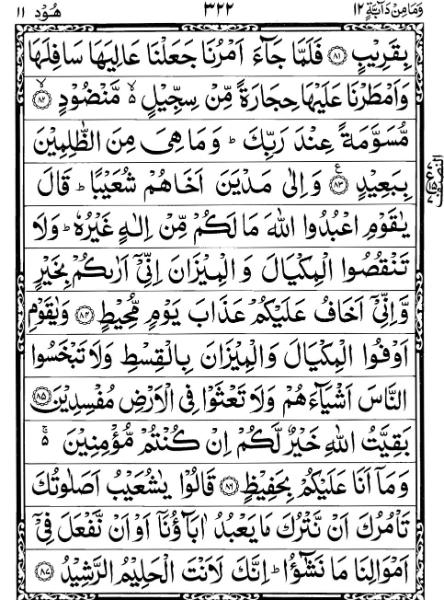 وَمَا مِنْ دَآبَّةٍ ١٢ ٣٢٢ هُوْد ١١
بِقَرِيْبٍ ﴿٨١﴾ فَلَمَّا جَآءَ اَمْرُنَا جَعَلْنَا عَالِيَهَا سَافِلَهَا
وَاَمْطَرْنَا عَلَيْهَا حِجَارَةً مِّنْ سِجِّيْلٍ ۙ۬ مَّنْضُوْدٍ ﴿٨٢﴾
مُّسَوَّمَةً عِنْدَ رَبِّكَ ؕ وَمَا هِىَ مِنَ الظّٰلِمِيْنَ
بِبَعِيْدٍ ﴿٨٣﴾ ع وَاِلٰى مَدْيَنَ اَخَاهُمْ شُعَيْبًا ؕ قَالَ
يٰقَوْمِ اعْبُدُوا اللّٰهَ مَا لَكُمْ مِّنْ اِلٰهٍ غَيْرُهٗ ؕ وَلَا
تَنْقُصُوا الْمِكْيَالَ وَالْمِيْزَانَ اِنِّىْۤ اَرٰىكُمْ بِخَيْرٍ
وَّاِنِّىْۤ اَخَافُ عَلَيْكُمْ عَذَابَ يَوْمٍ مُّحِيْطٍ ﴿٨٤﴾ وَيٰقَوْمِ
اَوْفُوا الْمِكْيَالَ وَالْمِيْزَانَ بِالْقِسْطِ وَلَا تَبْخَسُوا
النَّاسَ اَشْيَآءَهُمْ وَلَا تَعْثَوْا فِى الْاَرْضِ مُفْسِدِيْنَ ﴿٨٥﴾
بَقِيَّتُ اللّٰهِ خَيْرٌ لَّكُمْ اِنْ كُنْتُمْ مُّؤْمِنِيْنَ ۵
وَمَاۤ اَنَا عَلَيْكُمْ بِحَفِيْظٍ ﴿٨٦﴾ قَالُوْا يٰشُعَيْبُ اَصَلٰوتُكَ
تَاْمُرُكَ اَنْ نَّتْرُكَ مَا يَعْبُدُ اٰبَآؤُنَاۤ اَوْ اَنْ نَّفْعَلَ فِىْۤ
اَمْوَالِنَا مَا نَشٰٓؤُا ؕ اِنَّكَ لَاَنْتَ الْحَلِيْمُ الرَّشِيْدُ ﴿٨٧﴾